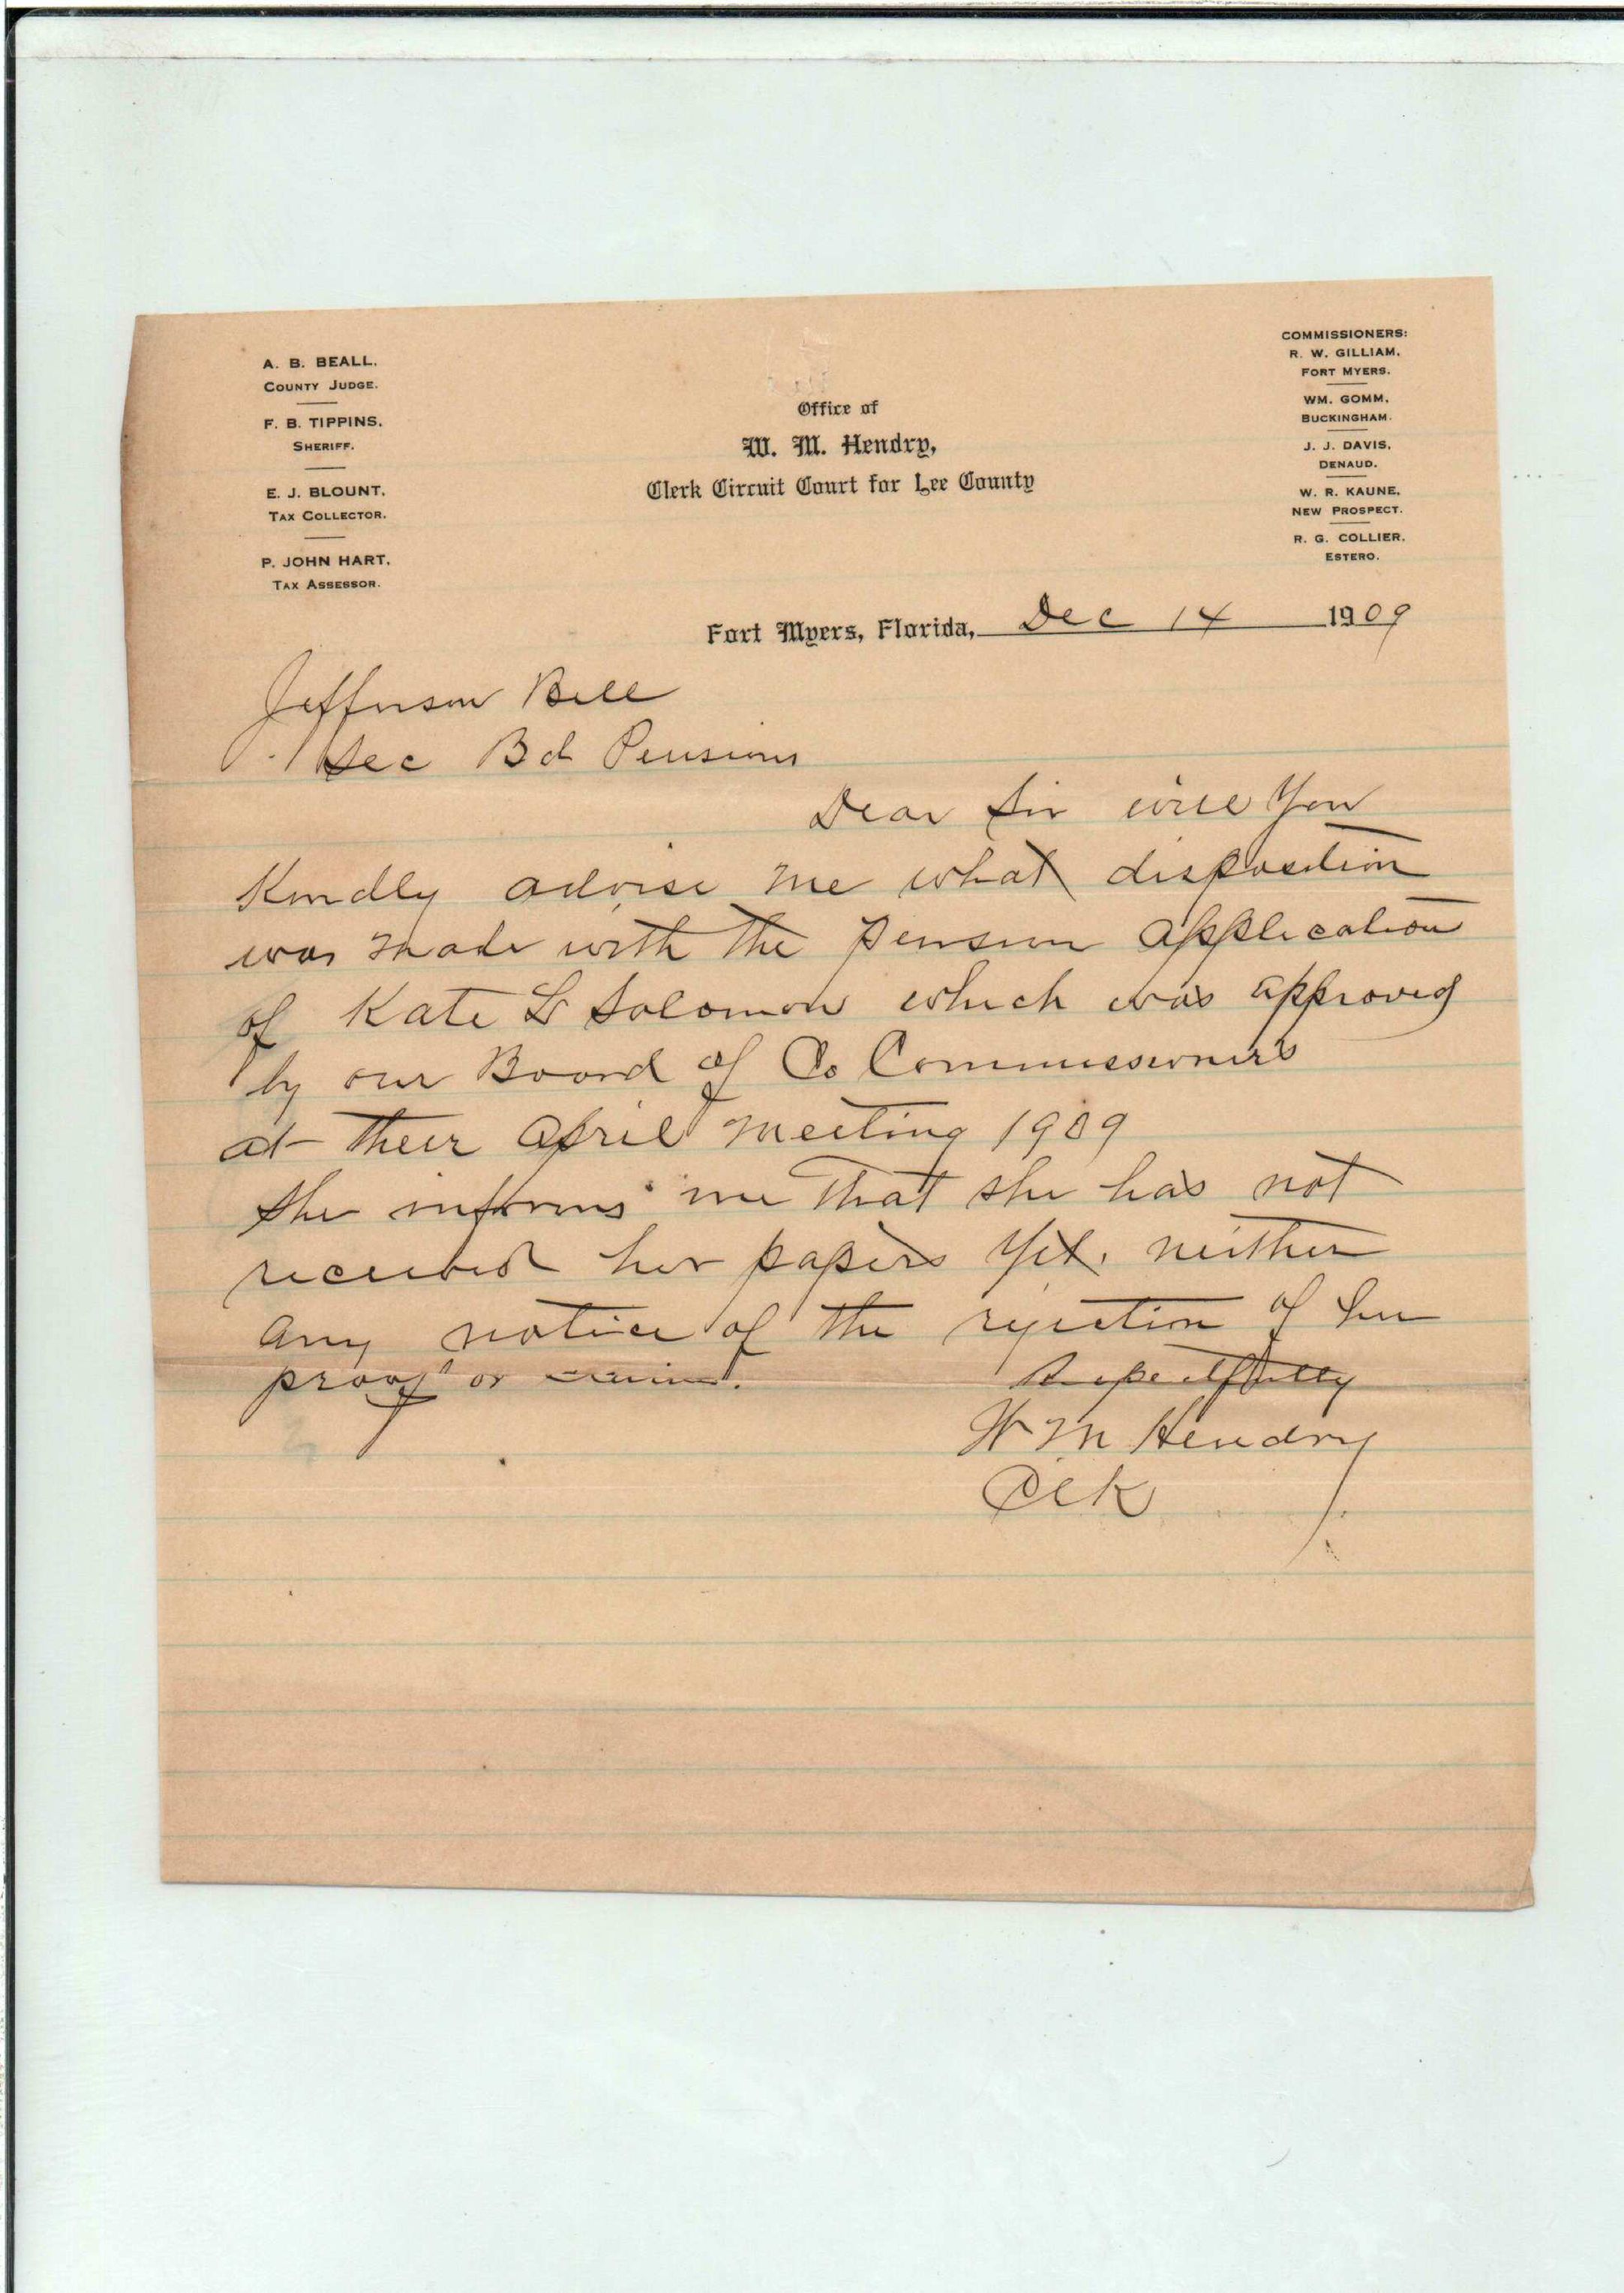 A. B. BEALL.
COUNTY JUDGE.
F. B. TIPPINS.
SHERIFF.
E. J. BLOUNT.
TAX COLLECTOR.
P. JOHN HART.
TAX ASSESSOR.
Office of
W. M. Hendry,
Clerk Circuit Court for Lee County
COMMISSIONERS:
R. W. GILLIAM.
FORT MYERS.
WM. GOMM.
BUCKINGHAM.
J. J. DAVIS.
DENAUD.
W. R. KAUNE.
NEW PROSPECT.
R. G. COLLIER.
ESTERO.
Fort Myers, Florida, Dec 14 1909
Jefferson Bell
Sec Bd Pensions
Dear Sir will You
Kindly advise me what disposition
was made with the pension application
of Kate L Solomon which was approved
by our Board of Co Commissioners
at their April meeting 1909
She informs me that she has not
received her papers yet, neither
any notice of the rejection of her
proof or claim.
Respectfully
W M Hendry
Clk